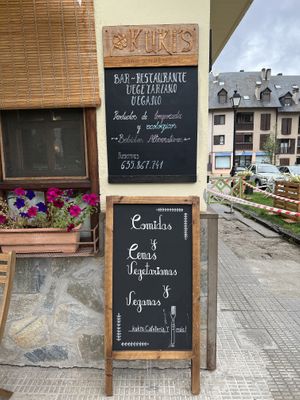 KUKI'S
BAR-RESTAURANTE
VEGETARIANO
VEGANO
Productos de temporada
y ecológicos
Bebidas Alternativas
Reservas
635.867.741
Comidas
y
Cenas
Vegetarianas
y
Veganas
y más!